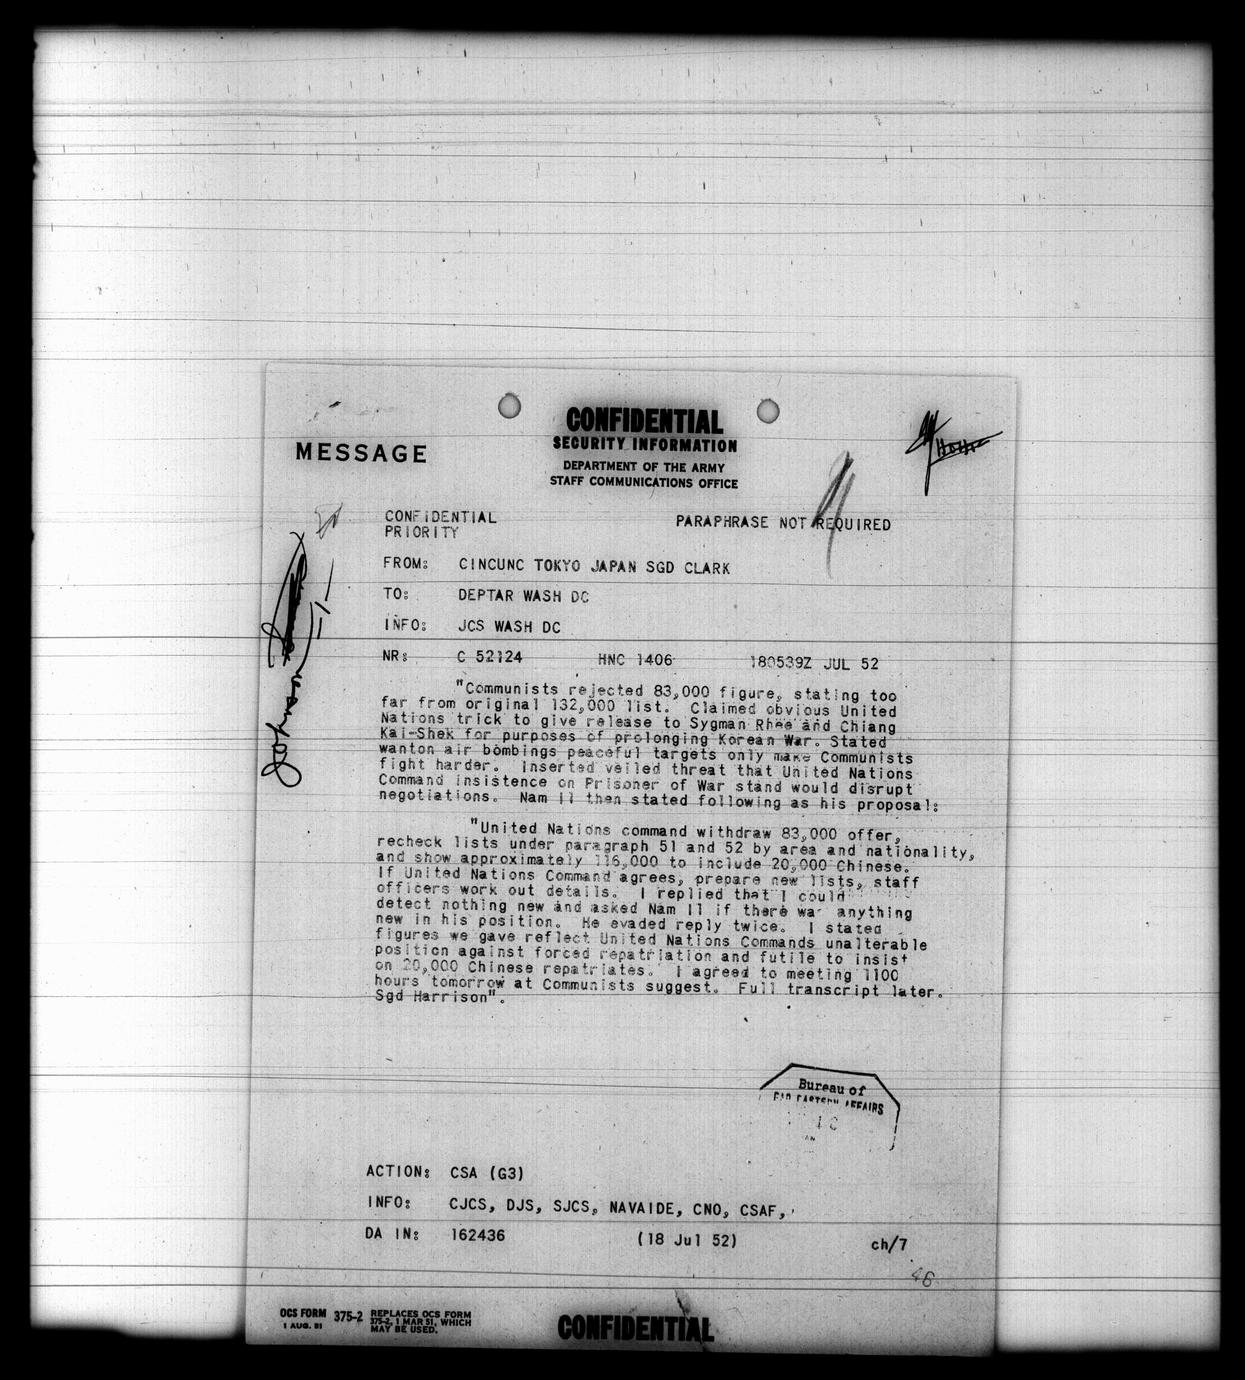 CONFIDENTIAL
SECURITY INFORMATION
MESSAGE
DEPARTMENT OF THE ARMY
STAFF COMMUNICATIONS OFFICE
CONFIDENTIAL
PRIORITY
PARAPHRASE NOT REQUIRED
FROM: CINCUNC TOKYO JAPAN SGD CLARK
TO: DEPTAR WASH DC
INFO: JCS WASH DC
NR: C 52124 HNC 1406 180539Z JUL 52
"Communists rejected 83,000 figure, stating too
far from original 132,000 list. Claimed obvious United
Nations trick to give release to Sygman Rhee and Chiang
Kai-Shek for purposes of prolonging Korean War. Stated
wanton air bombings peaceful targets only make Communists
fight harder. Inserted veiled threat that United Nations
Command insistence on Prisoner of War stand would disrupt
negotiations. Nam Il then stated following as his proposal:
"United Nations command withdraw 83,000 offer,
recheck lists under paragraph 51 and 52 by area and nationality,
and show approximately 116,000 to include 20,000 Chinese.
If United Nations Command agrees, prepare new lists, staff
officers work out details. I replied that I could
detect nothing new and asked Nam Il if there wa anything
new in his position. He evaded reply twice. I stated
figures we gave reflect United Nations Commands unalterable
position against forced repatriation and futile to insist
on 20,000 Chinese repatriates. I agreed to meeting 1100
hours tomorrow at Communists suggest. Full transcript later.
Sgd Harrison".
Bureau of
FAR EASTERN AFFAIRS
ACTION: CSA (G3)
INFO: CJCS, DJS, SJCS, NAVAIDE, CNO, CSAF,
DA IN: 162436 (18 Jul 52) ch/7
46
OCS FORM 375-2 REPLACES OCS FORM
1 AUG. 51 375-2, 1 MAR 51, WHICH
MAY BE USED.
CONFIDENTIAL
Johnson